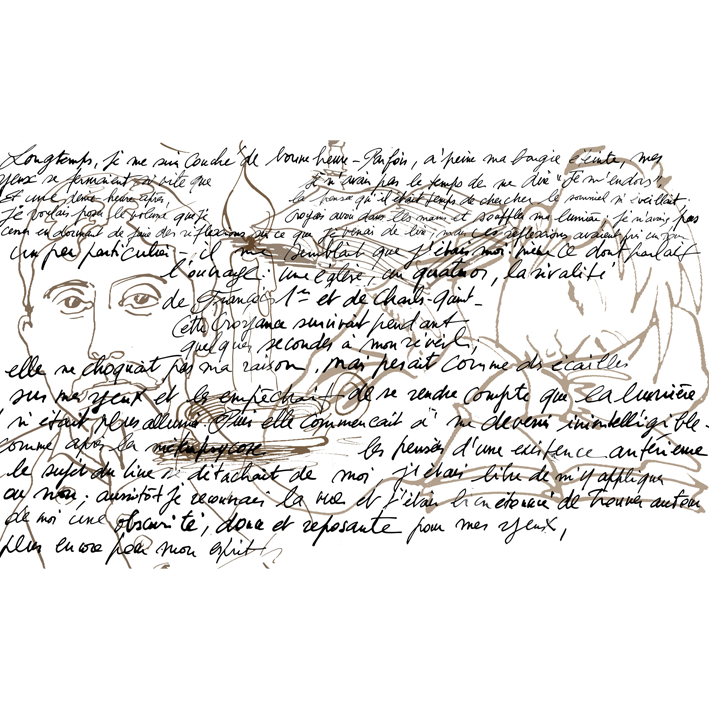 Longtemps, je me suis couché de bonne heure - Parfois, à peine ma bougie éteinte, mes
yeux se fermaient si vite que je n'avais pas le temps de me dire "Je m'endors"
Et une demie heure après la pensée qu'il était temps de chercher le sommeil m'éveillait.
Je voulais poser le volume que je croyais avoir dans les mains et souffler ma lumière. je n'avais pas
cessé en dormant de faire des réflexions sur ce que je venais de lire, mais ces réflexions avaient pris un tour
un peu particulier ; il me semblait que j'étais moi-même ce dont parlait
l'ouvrage : une église, un quatuor, la rivalité
de François 1er et de Charles-Quint -
Cette croyance survivait pendant
quelques secondes à mon réveil,
elle ne choquait pas ma raison, mais pesait comme des écailles
sur mes yeux et les empêchait de se rendre compte que la lumière
n'était plus allumée. Puis elle commençait à me devenir inintelligible.
comme après la métempsycose les pensées d'une existence antérieure
le sujet du livre se détachait de moi j'étais libre de m'y appliquer
ou non ; aussitôt je reconnais la vue et j'étais bien étonné de trouver autour
de moi une obscurité, douce et reposante pour mes yeux,
plus encore pour mon esprit